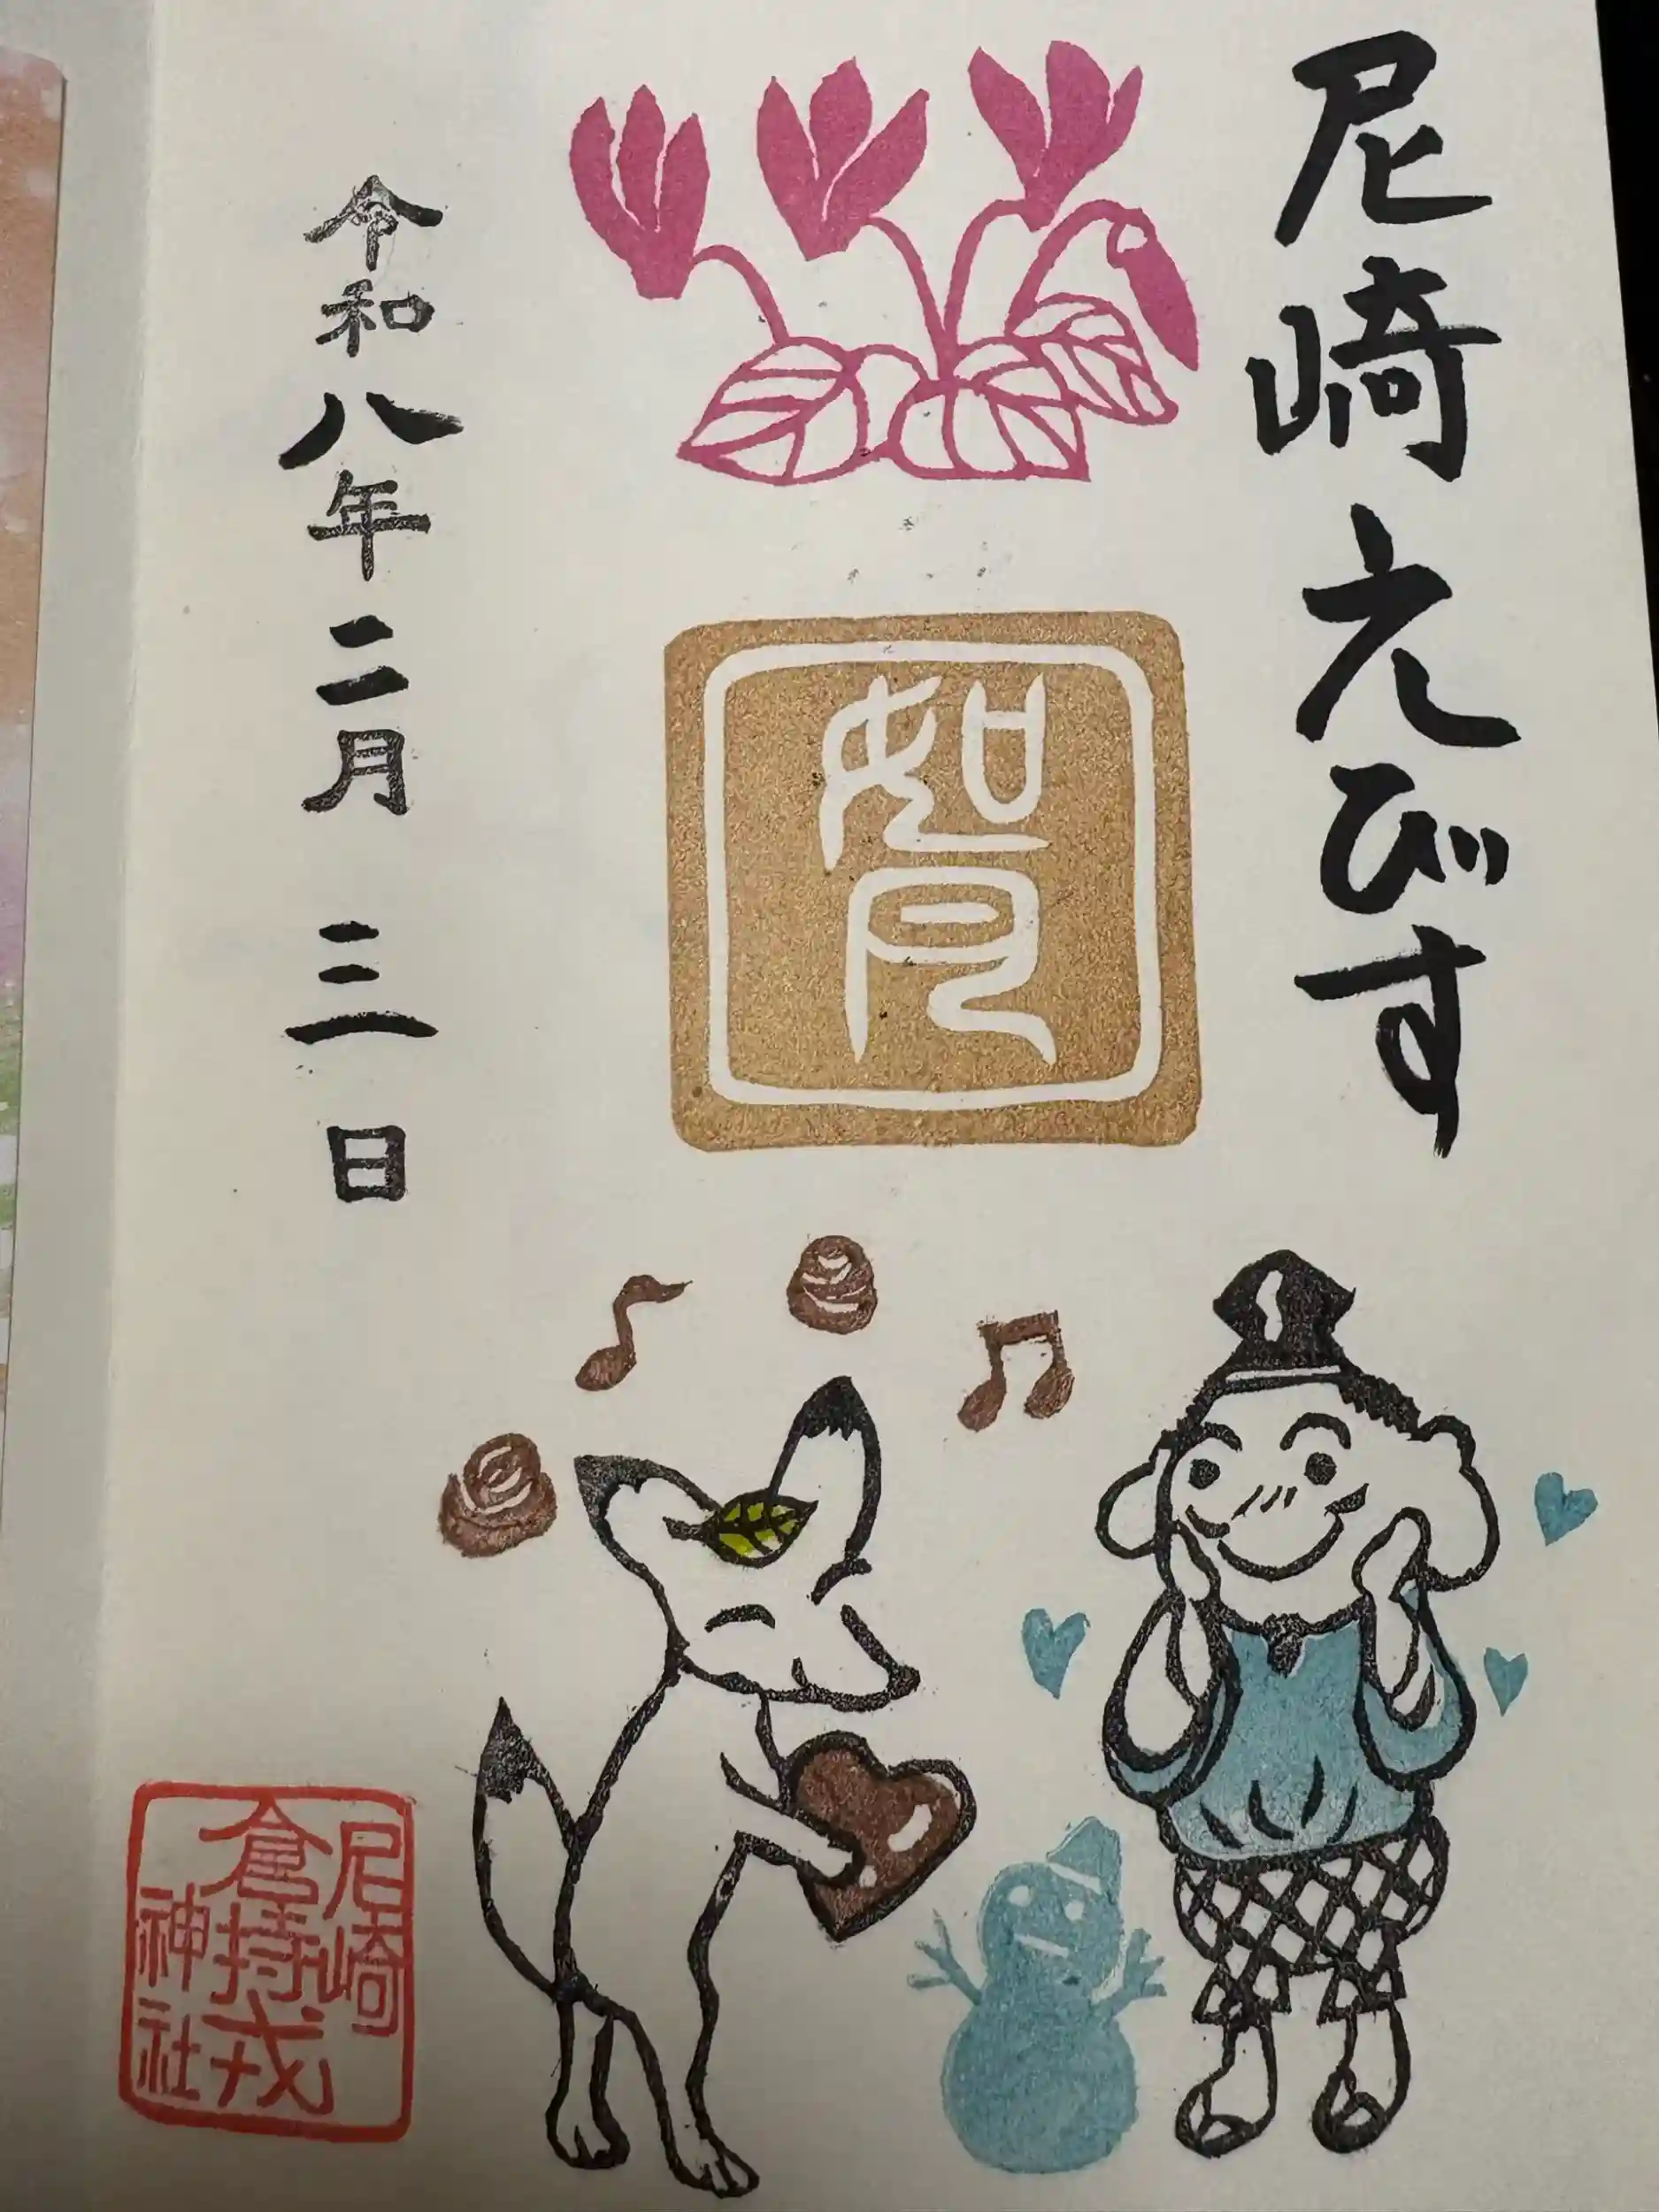 尼崎えびす
賀
令和八年二月三日
尼崎
倉持戎
神社